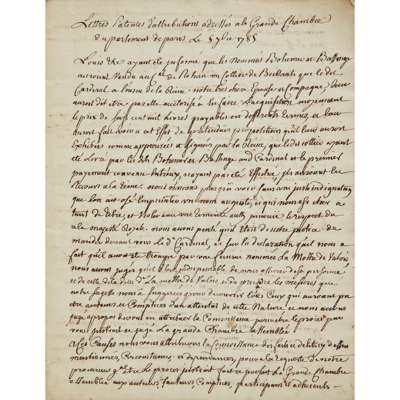 Lettres Patentes d'attributions adressées a la Grande Chambre
du parlement de paris Le 5 7bre 1785
Louis &c ayant été informé que les nommés Bohemer et Bassange
auroient vendu au Cal de Rohan un Collier de Brillants que le dit
Cardinal a l'insu de la Reine notre très chere Epouse et Compagne, leur
auroit dit être par elle autorisé a en faire l'acquisition moyennant
le prix de seize cent mille livres payables en differents termes, et leur
auroit fait voir a cet effet de prétendues propositions qu'il leur auroit
exhibées comme approuvées et signées par la Reine, que ledit collier ayant
été livré par lesdits Bohemer et Bassange audit Cardinal et le premier
payement convenu entr'eux n'ayant pas été effectué, ils auroient eu
recours a la Reine nous n'avons pas pu voir sans une juste indignation
que l'on ait osé emprunter un nom auguste et qui nous est cher a
tant de titres, et violer avec une témérité aussi inouie le respect du
a la majesté Royale. nous avons pensé qu'il étoit de notre justice de
mander devant nous le dit Cardinal, et sur la declaration qu'il nous a
fait qu'il avoit été trompé par une femme nommée La Motte de Valois
nous avons jugé qu'il étoit indispensable de nous assurer de sa personne
et de celle de la de. La Motte de Valois, et de prendre les mesures que
notre sagesse nous a suggerées pour découvrir tous ceux qui auroient pu
être auteurs ou Complices d'un attentat de cette Nature, et nous avons
jugé à propos de vous en attribuer la Connoissance pour être le procès par
vous instruit et jugé la grande Chambre assemblée
A Ces Causes nous vous attribuons la connoissance des faits et délits cy dessus
mentionnés, Circonstances et dependances, pour a la requete de notre
procureur gral être le procès instruit fait et parfait La Grande Chambre
assemblée aux auteurs, fauteurs, Complices, participans et adherents